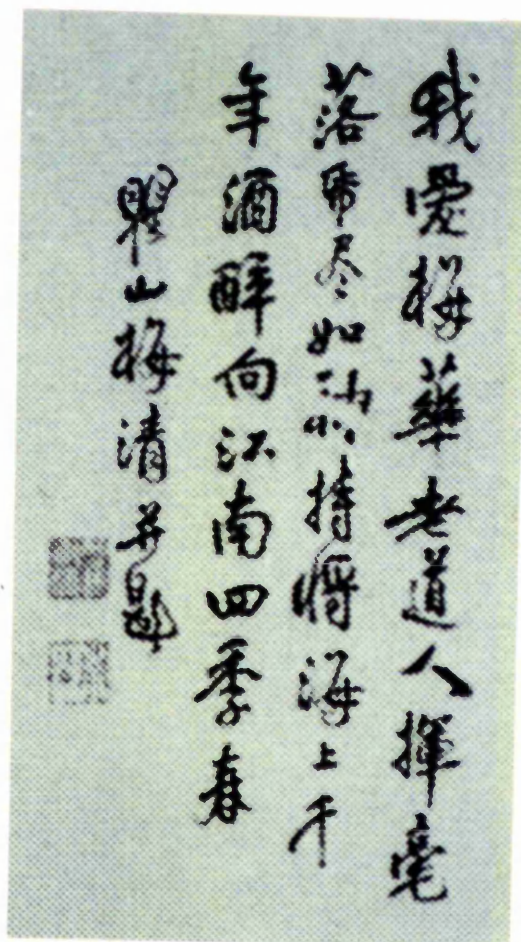 我愛梅華老道人揮毫
落帋尽如神持將海上千
年酒醉向江南四季春
瞿山梅清并題